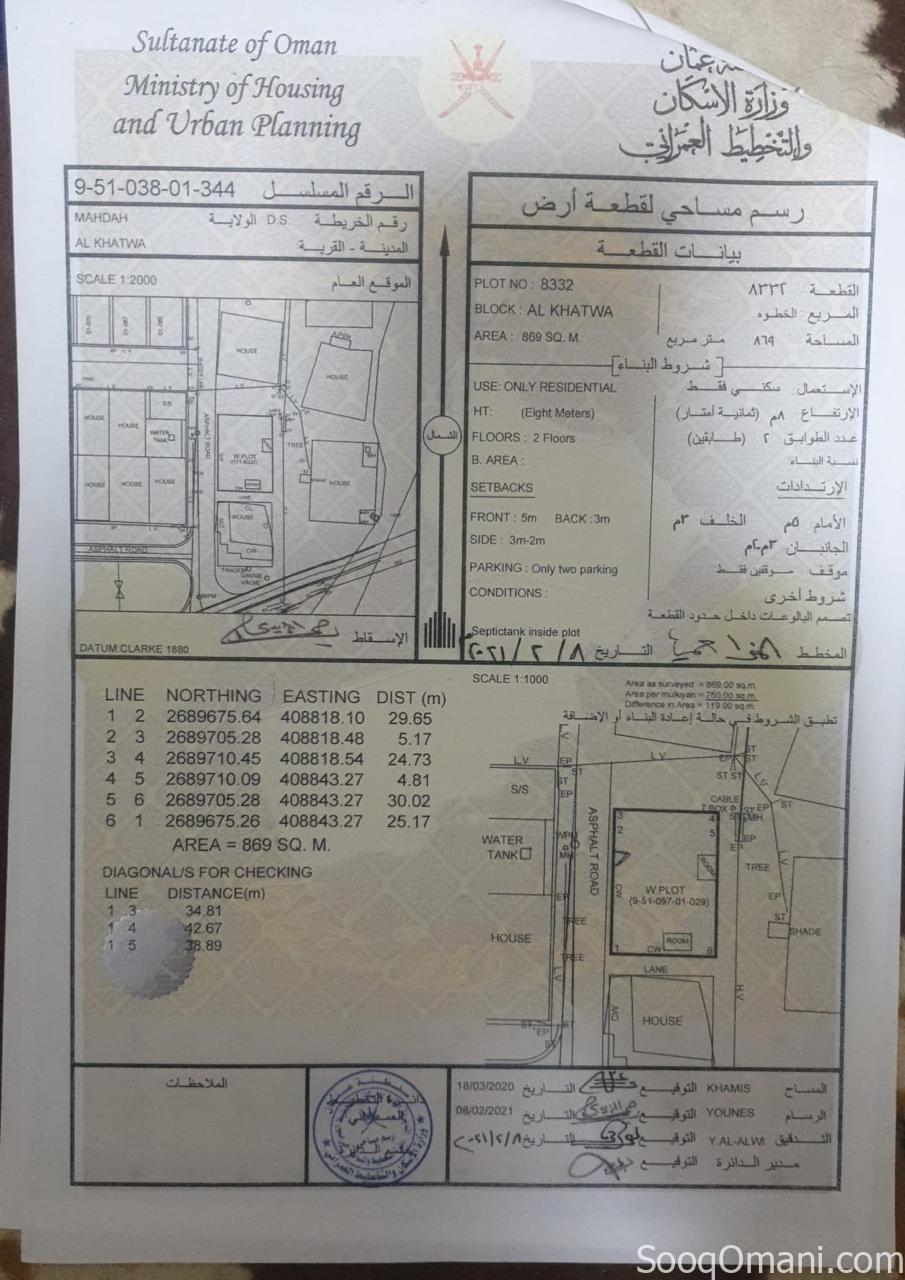 Sultanate of Oman
Ministry of Housing
and Urban Planning
عمان
وزارة الإسكان
والتخطيط العمراني
9-51-038-01-344 الرقم المسلسل
MAHDAH رقم الخريطة D.S. الولاية
AL KHATWA المدينة - القرية
SCALE 1:2000 الموقع العام
HOUSE
HOUSE
HOUSE
HOUSE
S/S
WATER
TANK
ASPHALT ROAD
W.PLOT
TREE
HOUSE
HOUSE
HOUSE
HOUSE
LANE
HOUSE
CW
ASPHALT ROAD
GAUGE
VALVE
WPM
DATUM:CLARKE 1880 الإسقاط
الشمال
رسم مساحي لقطعة أرض
بيانات القطعة
PLOT NO : 8332 القطعة ٨٣٣٢
BLOCK : AL KHATWA المربع الخطوه
AREA : 869 SQ. M. المساحة ٨٦٩ متر مربع
شروط البناء
USE: ONLY RESIDENTIAL الإستعمال سكني فقط
HT: (Eight Meters) الإرتفاع ٨م (ثمانية أمتار)
FLOORS : 2 Floors عدد الطوابق ٢ (طابقين)
B. AREA : نسبة البناء
SETBACKS الإرتدادات
FRONT : 5m BACK :3m الأمام ٥م الخلف ٣م
SIDE : 3m-2m الجانبان ٣م-٢م
PARKING : Only two parking موقف موقفين فقط
CONDITIONS : شروط أخرى
تصمم البالوعات داخل حدود القطعة
Septictank inside plot
المخطط التاريخ ٢٠٢١/٢/٨
LINE NORTHING EASTING DIST (m)
1 2 2689675.64 408818.10 29.65
2 3 2689705.28 408818.48 5.17
3 4 2689710.45 408818.54 24.73
4 5 2689710.09 408843.27 4.81
5 6 2689705.28 408843.27 30.02
6 1 2689675.26 408843.27 25.17
AREA = 869 SQ. M.
DIAGONAL/S FOR CHECKING
LINE DISTANCE(m)
1 3 34.81
1 4 42.67
1 5 38.89
SCALE 1:1000
Area as surveyed = 869.00 sq.m.
Area per mulkiyah = 750.00 sq.m.
Difference in Area = 119.00 sq.m.
تطبق الشروط في حالة إعادة البناء أو الإضافة
L.V
EP
ST
S/S
L.V
EP
ST
ST ST
L.V
CABLE
T.BOX
MH
EP
ST
WATER
TANK
WPM
MH
ASPHALT ROAD
3
2
4
5
ROOM
CW
W.PLOT
(9-51-097-01-029)
TREE
EP
ST
SHADE
HOUSE
TREE
TREE
1
CW
ROOM
6
LANE
L.V
H.V
HOUSE
ST
EP
ST
الملاحظات
المساح KHAMIS التوقيع التاريخ 18/03/2020
الرسام YOUNES التوقيع التاريخ 08/02/2021
التدقيق Y.AL-ALWI التوقيع التاريخ ٢٠٢١/٢/٨
مدير الدائرة التوقيع
SooqOmani.com